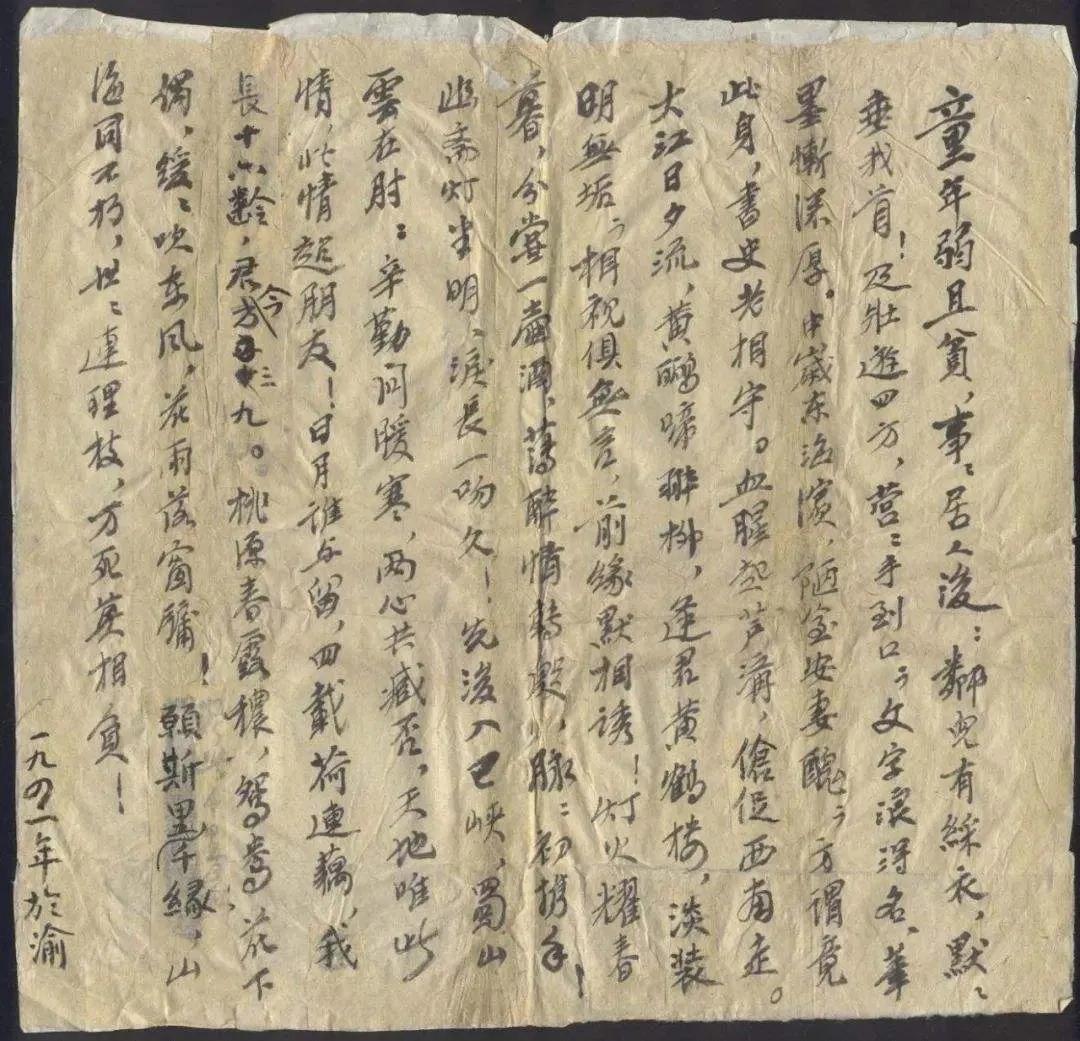 童年弱且貧，事々居人後；鄰兒有綵衣，默々
垂我首！及壯遊四方，營々手到口，文字浪得名，華
墨慚深厚。中歲东海濱，陋室安妻醜，方謂竟
此身，書史老相守。血腥起芦溝，傖促西南走。
大江日夕流，黃鸝啼聯柳，逢君黃鶴樓，淡裝
明無垢，相視俱無言，前緣默相誘！灯火耀春
暮，分嘗一壺酒，薄醉情轉凝，脈々初携手！
幽斋灯半明，淚長一吻久！先後入巴峽，蜀山
雲在肘；辛勤问暖寒，两心共臧否，天地唯此
情，此情超朋友！日月誰与留，四載荷連藕，我
長十六齡，君今方三九。桃源春露穠，鴛鴦花下
偶，緩々吹东风，花雨落窗牖！願斯千里緣，山
海同不朽，世々連理枝，万死莫相負！
一九四一年於渝